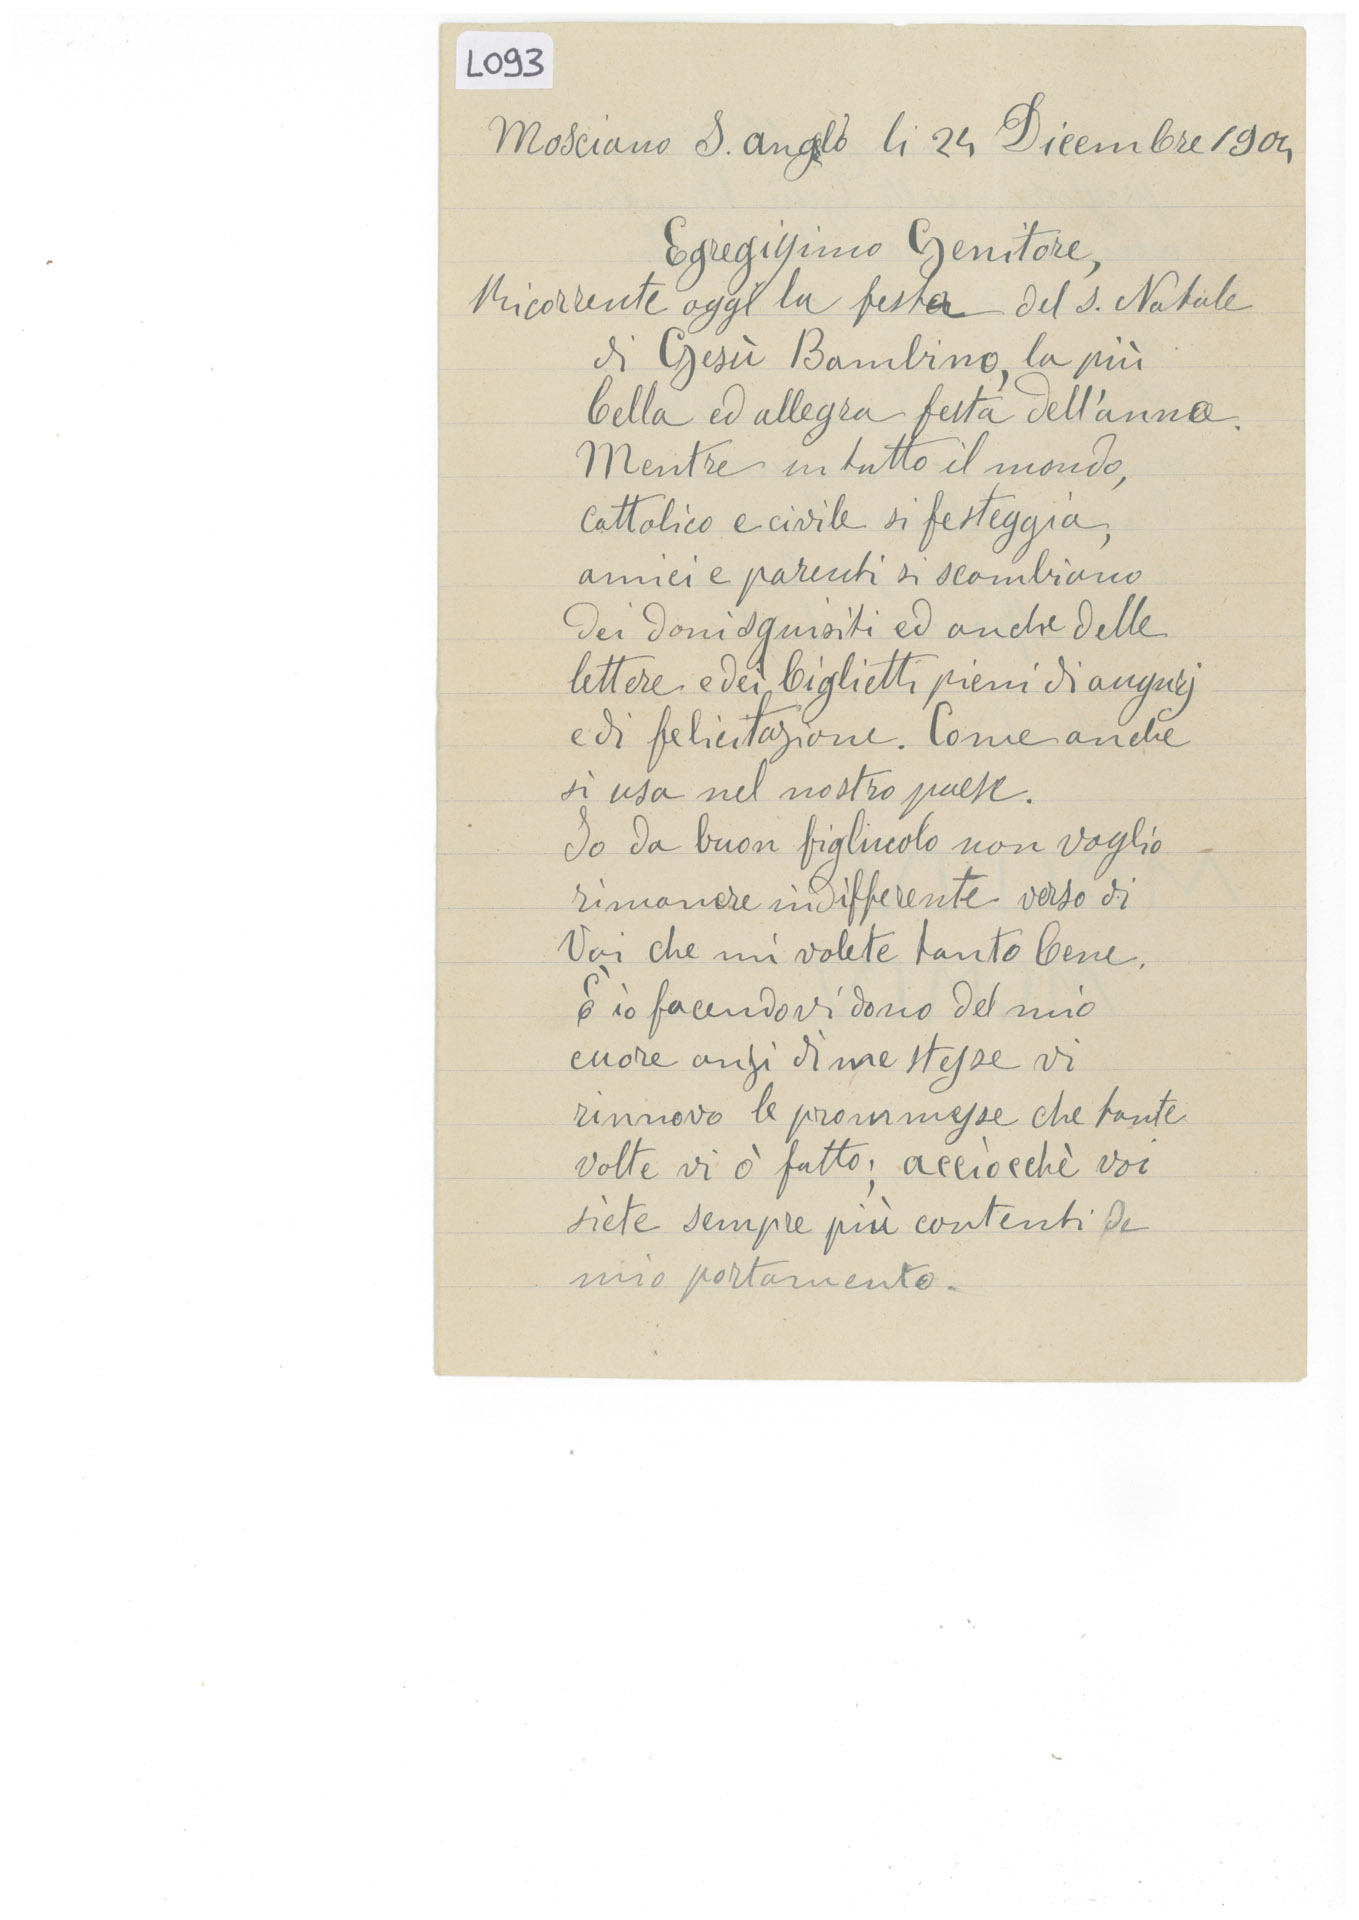 L093
Mosciano S. anglo li 24 Dicembre 1904
Egregissimo Genitore,
Ricorrente oggi la festa del s. Natale
di Gesù Bambino, la più
bella ed allegra festa dell'anno.
Mentre in tutto il mondo,
cattolico e civile si festeggia,
amici e parenti si scambiano
dei doni squisiti ed anche delle
lettere e dei biglietti pieni di augurj
e di felicitazione. Come anche
si usa nel nostro paese.
Io da buon figliuolo non voglio
rimanere indifferente verso di
Voi che mi volete tanto bene.
È io facendovi dono del mio
cuore anzi di me stesse vi
rinnovo le prommesse che tante
volte vi ò fatto; acciocchè voi
siete sempre più contenti de
mio portamento.